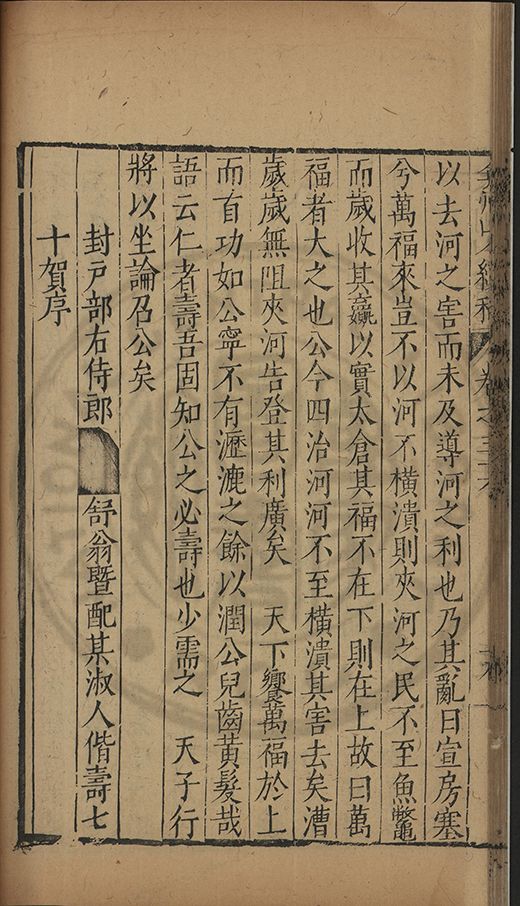 以去河之害而未及導河之利也乃其亂曰宣房塞
兮萬福來豈不以河不橫潰則夾河之民不至魚鼈
而歲收其羸以實太倉其福不在下則在上故曰萬
福者大之也公今四治河河不至橫潰其害去矣漕
歲歲無阻夾河告登其利廣矣　天下饗萬福於上
而首功如公寧不有瀝漉之餘以潤公兒齒黃髮哉
語云仁者壽吾固知公之必壽也少需之　天子行
將以坐論召公矣
封戸部右侍郎　舒翁暨配某淑人偕壽七
十賀序